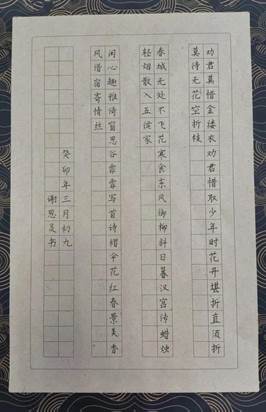 劝君莫惜金缕衣劝君惜取少年时花开堪折直须折
莫待无花空折枝
春城无处不飞花寒食东风御柳斜日暮汉宫传蜡烛
轻烟散入五侯家
闲心趣雅倚窗思谷雨霏霏写首诗惜今花红春景美香
风借宿寄情丝
癸卯年三月初九
谢思
书